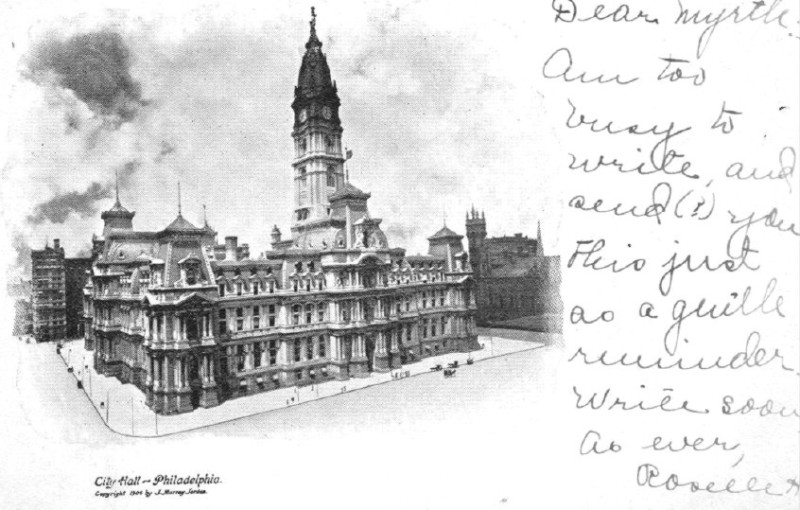 Dear Myrtle:
Am too
busy to
write, and
send(?) you
this just
as a gentle
reminder.
Write soon
As ever,
City Hall — Philadelphia.
Copyright 1904 by J. Murray Jordan.